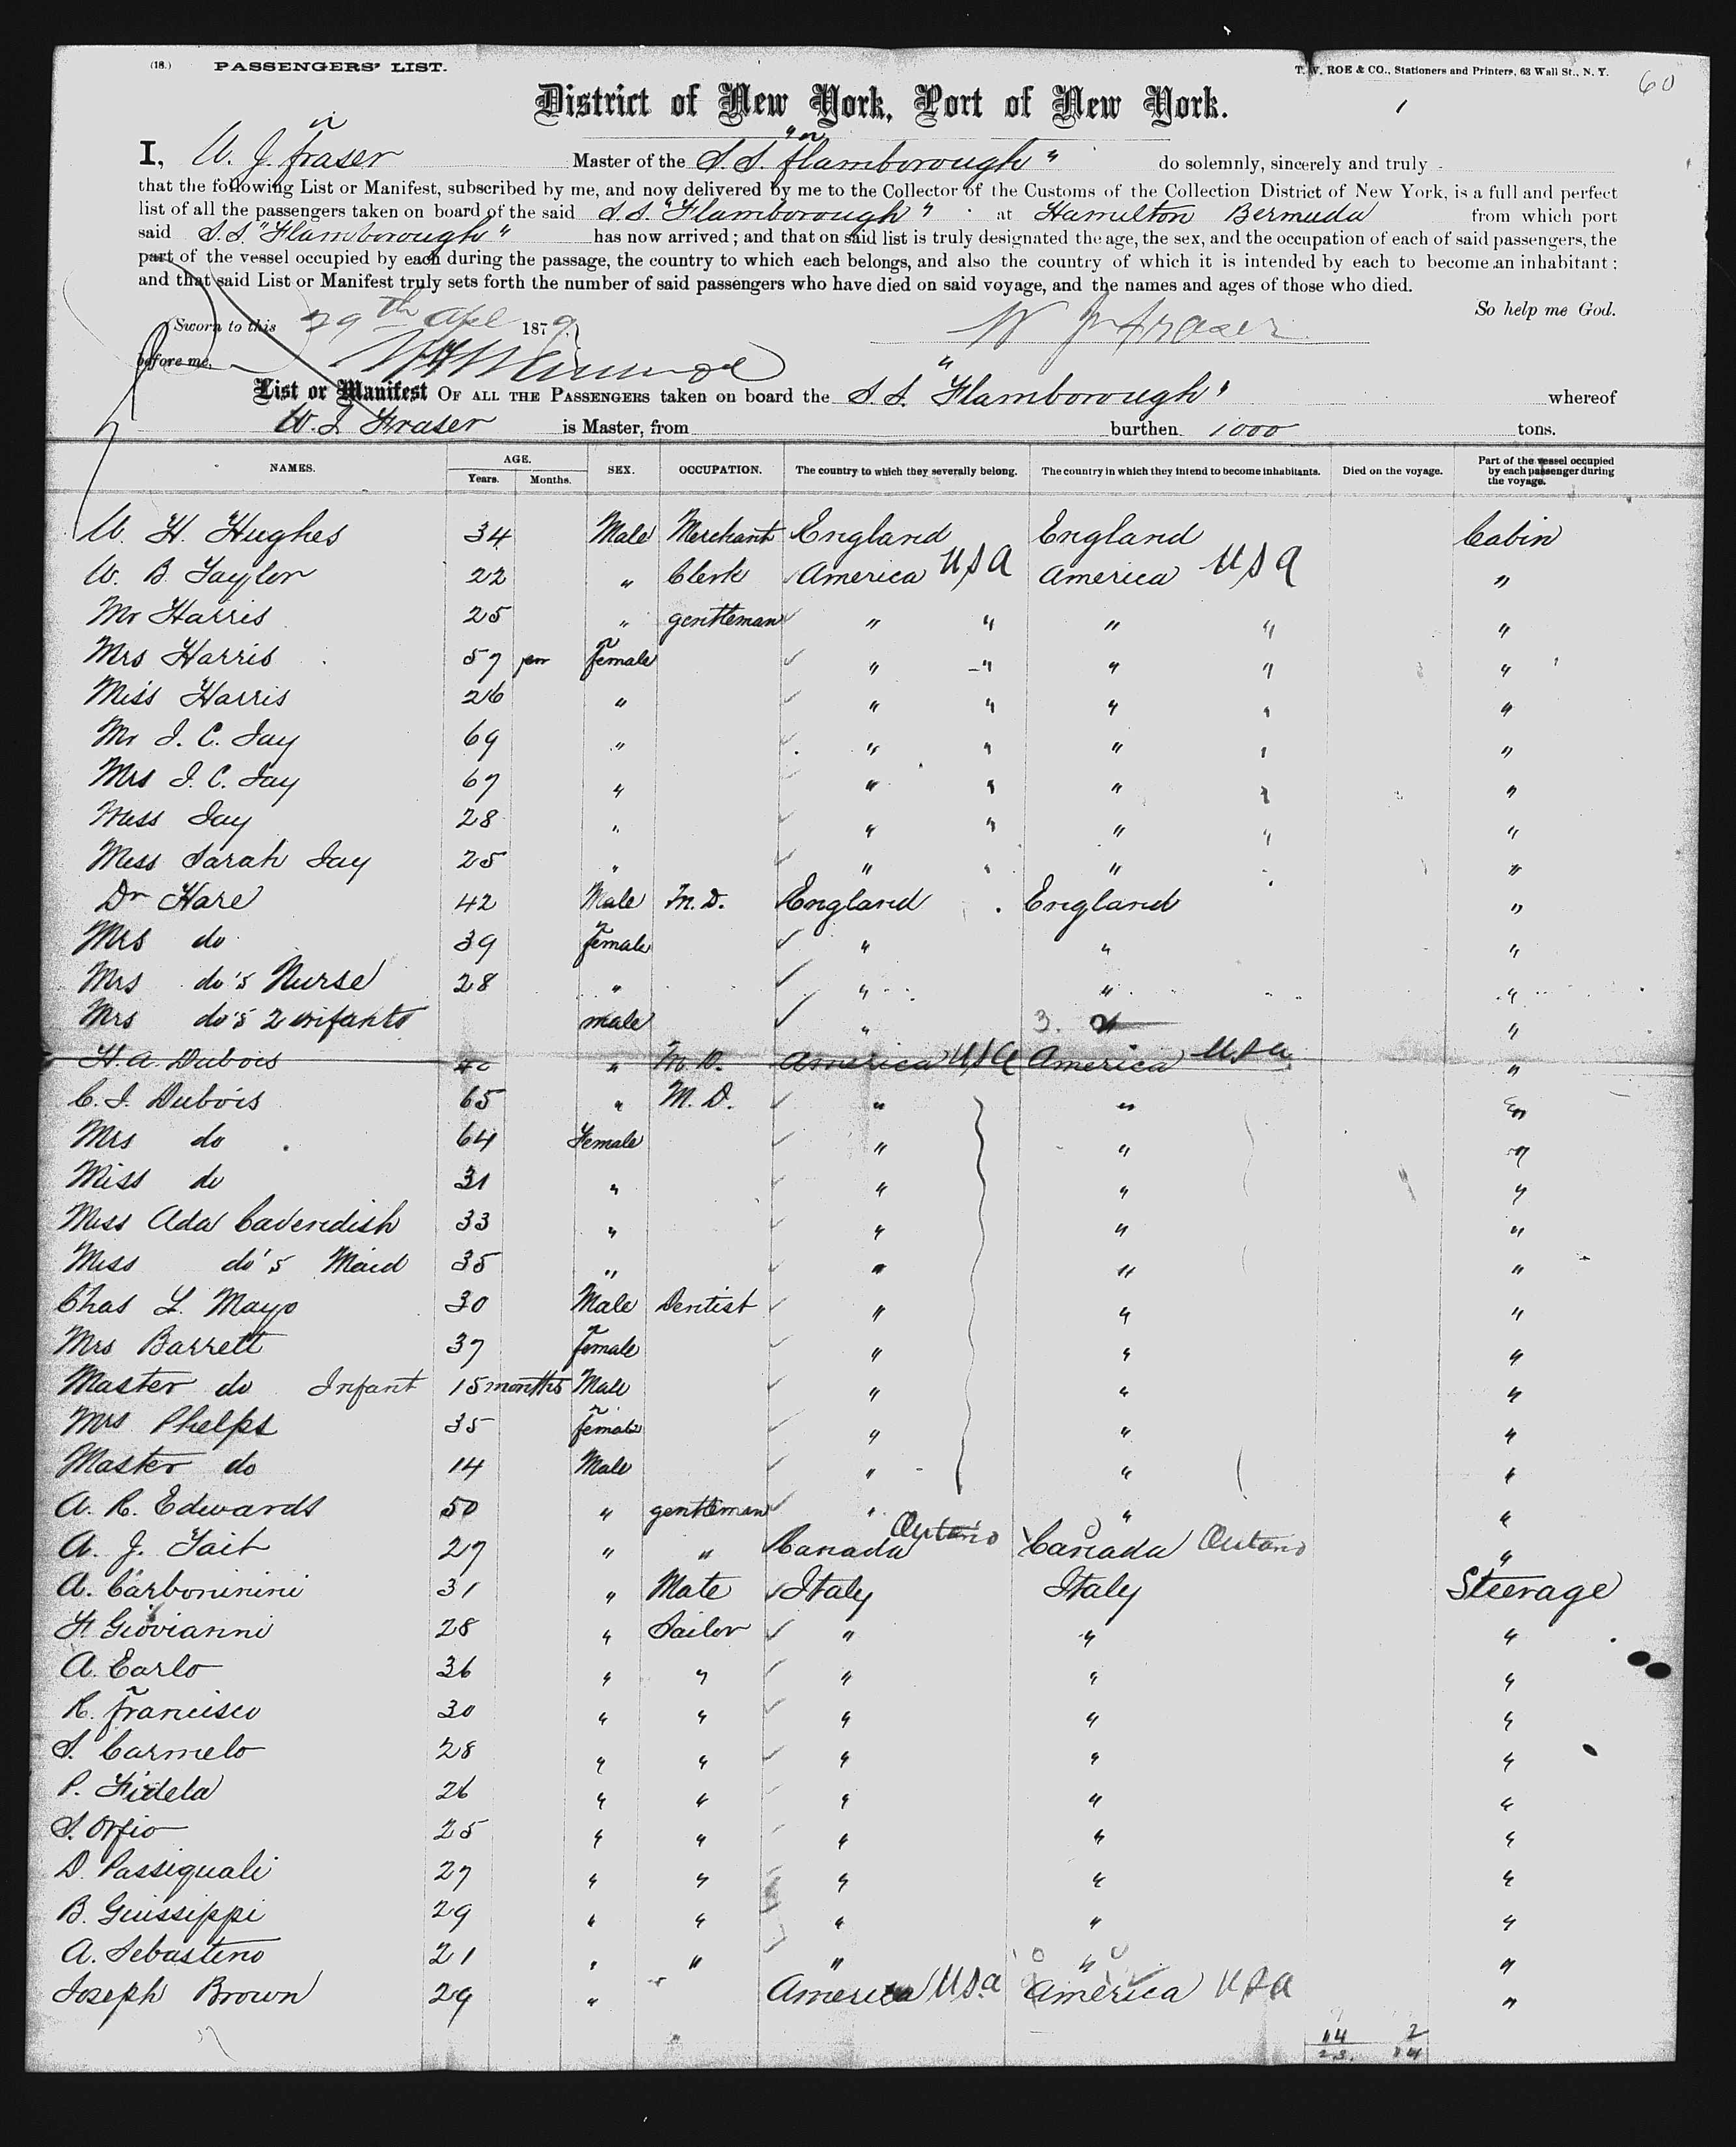 (18.) PASSENGERS' LIST. T. W. ROE & CO., Stationers and Printers, 63 Wall St., N. Y. 60
District of New York, Port of New York. 1
I, W. J. Fraser Master of the S.S. "Flamborough" do solemnly, sincerely and truly
that the following List or Manifest, subscribed by me, and now delivered by me to the Collector of the Customs of the Collection District of New York, is a full and perfect
list of all the passengers taken on board of the said S.S. "Flamborough" at Hamilton Bermuda from which port
said S.S. "Flamborough" has now arrived; and that on said list is truly designated the age, the sex, and the occupation of each of said passengers, the
part of the vessel occupied by each during the passage, the country to which each belongs, and also the country of which it is intended by each to become an inhabitant:
and that said List or Manifest truly sets forth the number of said passengers who have died on said voyage, and the names and ages of those who died.
So help me God.
Sworn to this 29th Apl 1879 W J Fraser
before me,
List or Manifest OF ALL THE PASSENGERS taken on board the S.S. "Flamborough" whereof
W. J. Fraser is Master, from burthen 1000 tons.
NAMES. AGE. Years. Months. SEX. OCCUPATION. The country to which they severally belong. The country in which they intend to become inhabitants. Died on the voyage. Part of the vessel occupied by each passenger during the voyage.
W. H. Hughes 34 Male Merchant England England Cabin
W. B. Taylor 22 " Clerk America USA America USA "
Mr Harris 25 " gentleman " " " " "
Mrs Harris 57 female " " " " "
Miss Harris 26 " " " " " "
Mr J. C. Jay 69 " " " " " "
Mrs J. C. Jay 67 " " " " " "
Miss Jay 28 " " " " " "
Miss Sarah Jay 25 " " " " "
Dr Hare 42 Male M.D. England England "
Mrs do 39 female " " "
Mrs do's Nurse 28 " " " "
Mrs do's 2 infants male " 3. "
H. A. Dubois 40 " M.D. America USA America USA "
C. J. Dubois 65 " M.D. " " "
Mrs do 64 Female " " "
Miss do 31 " " " "
Miss Ada Cavendish 33 " " " "
Miss do's Maid 35 " " " "
Chas L. Mayo 30 Male Dentist " " "
Mrs Barrett 37 female " " "
Master do Infant 15 months Male " " "
Mrs Phelps 35 female " " "
Master do 14 Male " " "
A. R. Edwards 50 " gentleman " " "
A. J. Tait 27 " " Canada Ontario Canada Ontario "
A. Carboninini 31 " Mate Italy Italy Steerage
F. Giovianni 28 " Sailor " " "
A. Carlo 36 " " " " "
R. Francisco 30 " " " " "
S. Carmelo 28 " " " " "
P. Fidela 26 " " " " "
S. Orfio 25 " " " " "
D. Passiquali 27 " " " " "
B. Guissippi 29 " " " " "
A. Sebastino 21 " " " " "
Joseph Brown 29 " America USA America USA "
14 2
23. 14